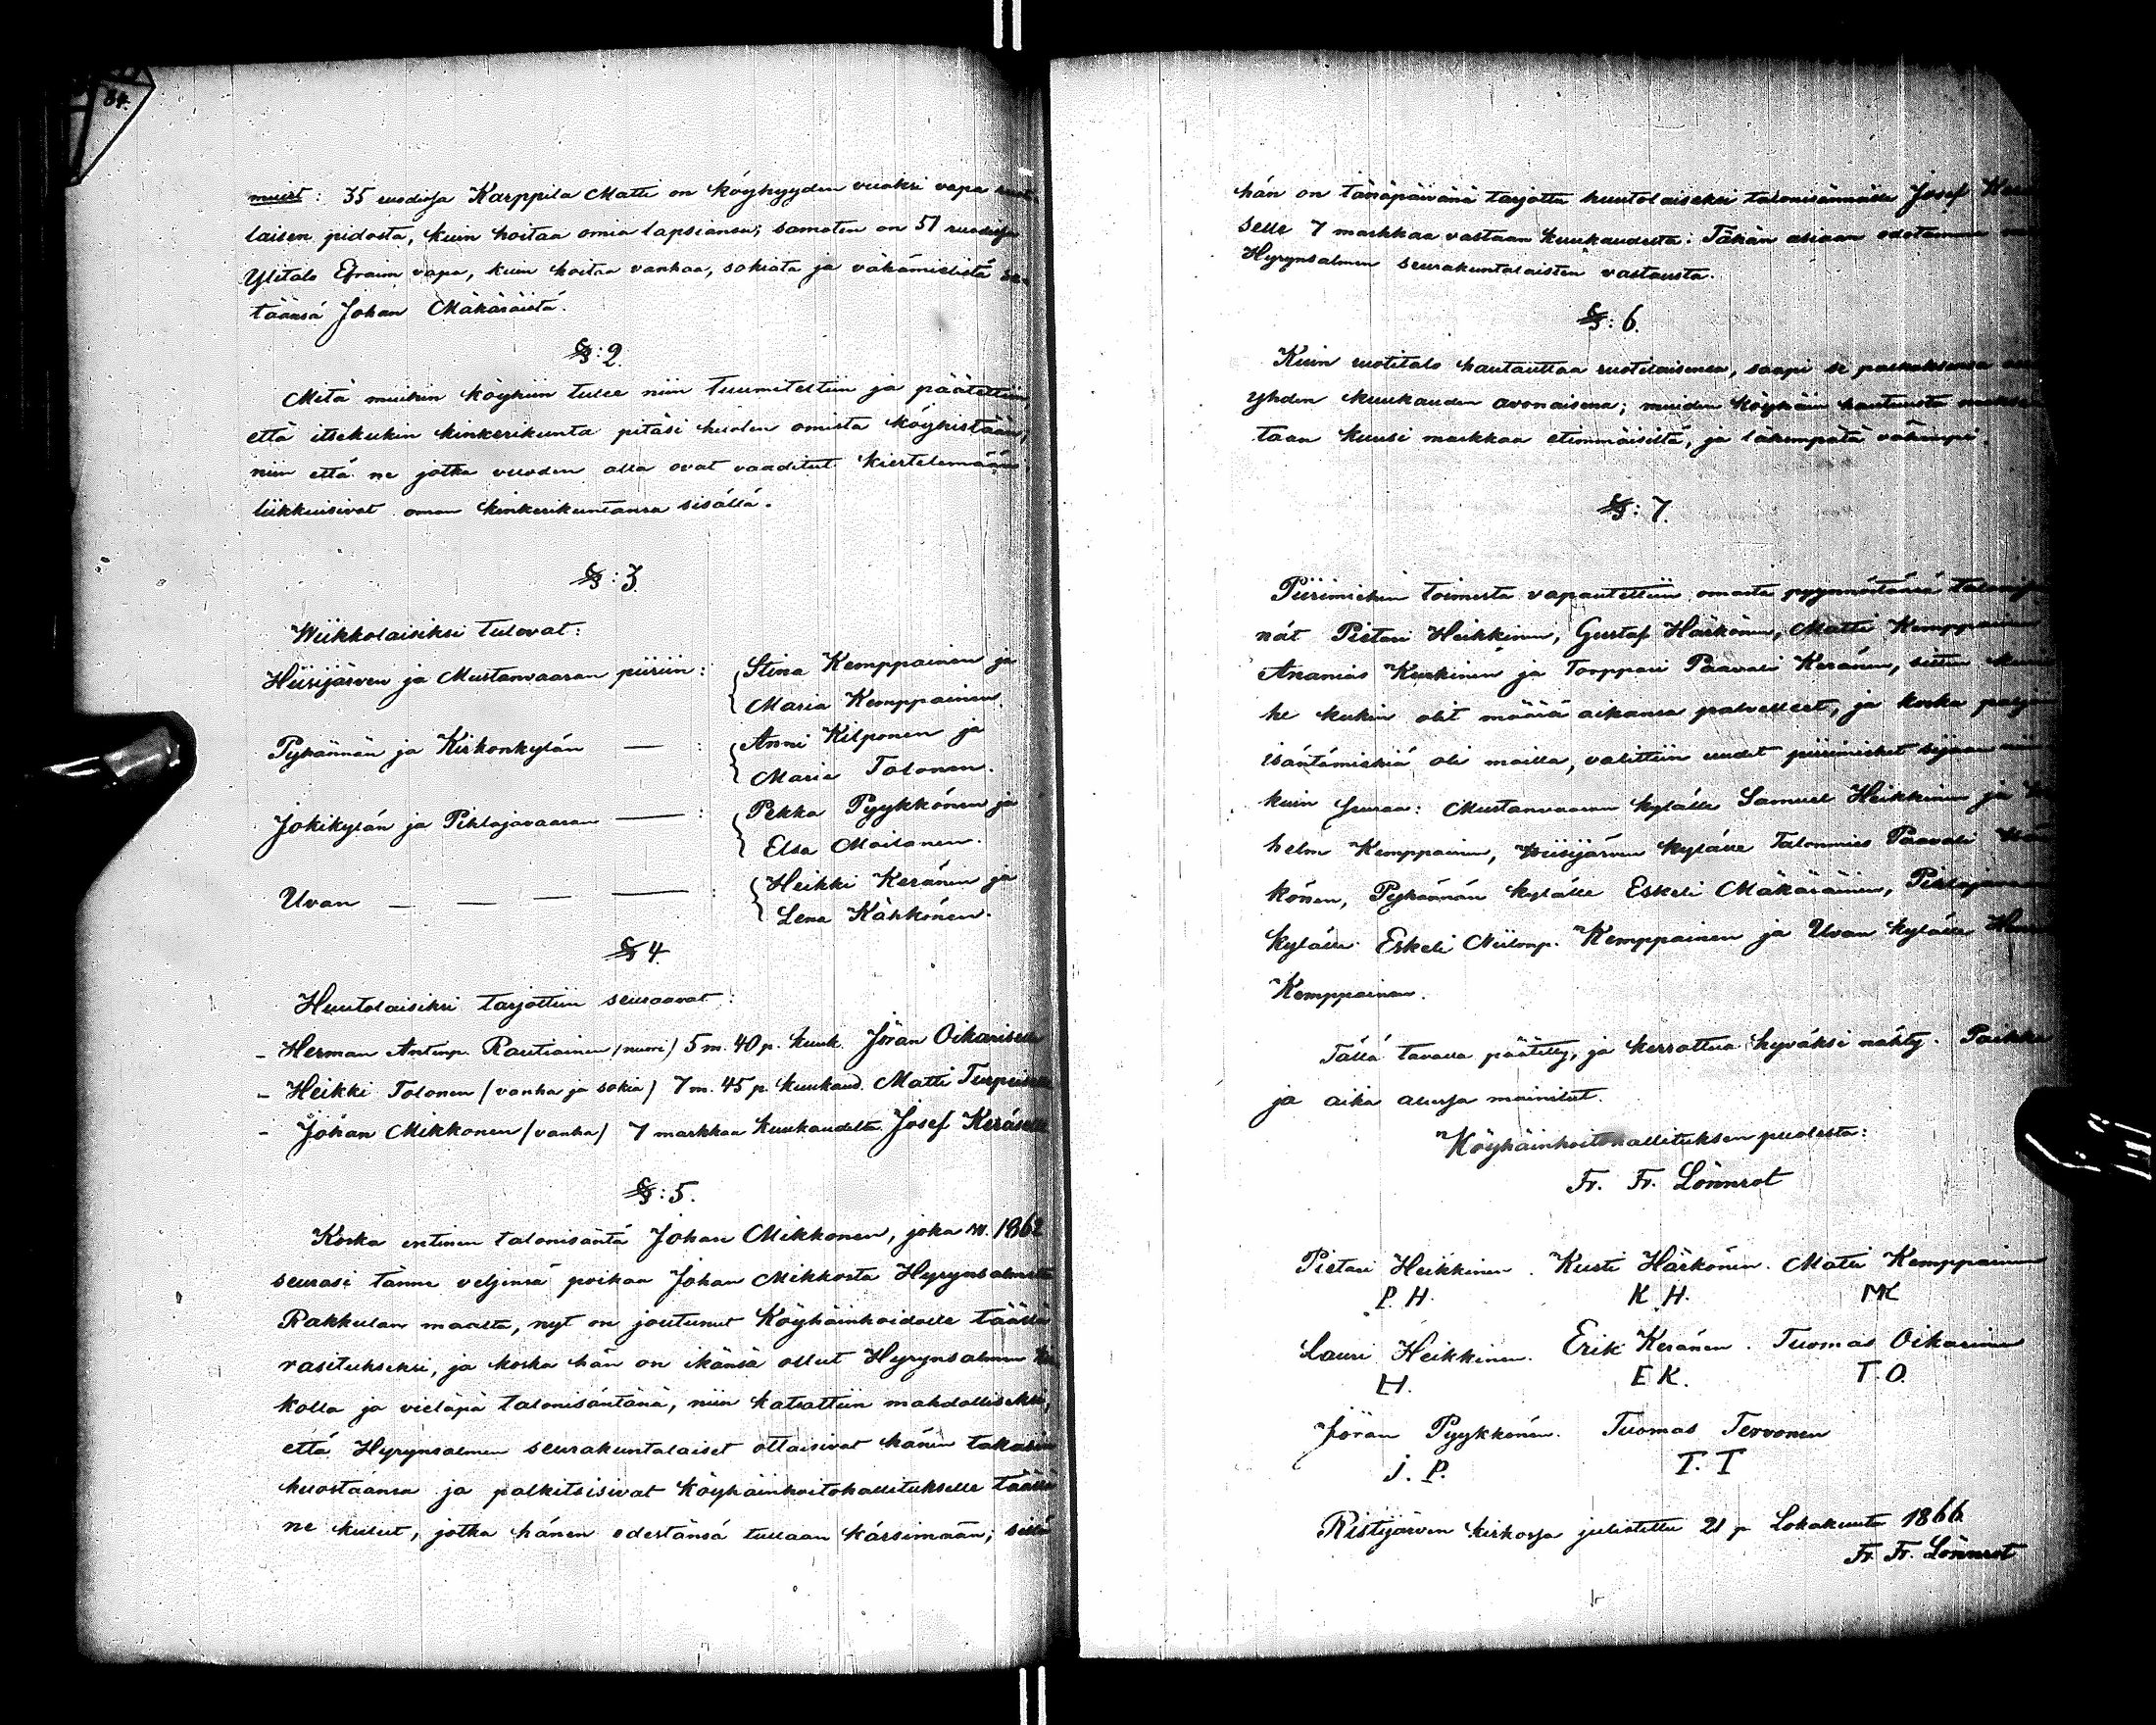 84.
muist: 35 ruodissa Karppila Matti on köyhyyden vuoksi vapa ruot-
laisen pidosta, kuin hoitaa omia lapsiansa; samoten on 51 ruodissa
Ylitalo Efraim vapa, kuin hoitaa vanhaa, sokiata ja vähämielistä se-
täänsä Johan Mäkäräistä.
§: 2.
Mitä muihin köyhiin tulee niin tuumiteltiin ja päätettiin,
että itsekukin kinkerikunta pitäsi huolen omista köyhistään,
niin että ne jotka vuoden alla ovat vaaditut kiertelemään,
liikkuisivat oman kinkerikuntansa sisällä.
§: 3.
Wiikkolaisiksi tulevat:
Hiisijärven ja Mustanvaaran piiriin: Stina Kemppainen ja
Maria Kemppainen.
Pyhännän ja Kirkonkylän — : Anni Kilponen ja
Maria Tolonen.
Jokikylän ja Pihlajavaaran — : Pekka Pyykkönen ja
Elsa Moilanen.
Uvan — — — — : Heikki Keränen ja
Lena Kähkönen.
§ 4.
Huutolaisiksi tarjottiin seuraavat:
- Herman Antinp. Rautiainen (nuori) 5 m. 40 p. kuuk. Jöran Oikariselle
- Heikki Tolonen (vanha ja sokia) 7 m. 45 p. kuukaud. Matti Turpeiselle
- Johan Mikkonen (vanha) 7 markkaa kuukaudelta Josef Keräselle
§: 5.
Koska entinen talonisäntä Johan Mikkonen, joka w. 1862
seurasi tänne veljensä poikaa Johan Mikkosta Hyrynsalmelta
Rakkulan maalta, nyt on joutunut Köyhäinhoidolle täällä
rasitukseksi, ja koska hän on ikänsä ollut Hyrynsalmen kir-
kolla ja vieläpä talonisäntänä, niin katsottiin mahdolliseksi,
että Hyrynsalmen seurakuntalaiset ottaisivat hänen takasin
huostaansa ja palkitsisivat köyhäinhoitohallitukselle täällä
ne kulut, jotka hänen edestänsä tullaan kärsimään; sillä
hän on tänäpäivänä tarjottu huutolaiseksi talonisännälle Josef Kerä-
selle 7 markkaa vastaan kuukaudelta. Tähän asiaan odotamme
Hyrynsalmen seurakuntalaisten vastausta.
§: 6.
Kuin ruotitalo hautauttaa ruotilaisensa, saapi se palkaksensa
yhden kuukauden avonaisena; muiden köyhäin hautuusta maksa-
taan kuusi markkaa etimmäisiltä, ja lähempätä vähempi.
§: 7.
Piirimiehen toimesta vapautettiin omasta pyynnöstänsä talonisän-
nät Pietari Heikkinen, Gustaf Härkönen, Matti Kemppainen
Ananias Kurkinen ja Torppari Paavali Keränen, sitten kuin
he kukin olit määrä aikansa palvelleet, ja koska paljon
isäntämiehiä oli mailla, valittiin uudet piirimiehet sijaan niin
kuin seuraa: Mustanvaaran kylälle Samuel Heikkinen ja
helm Kemppainen, Hiisijärven kylälle Talonmies Paavali
könen, Pyhännän kylälle Eskeli Mäkäräinen, Pihlajavaaran
kylälle Eskeli Niilonp. Kemppainen ja Uvan kylälle
Kemppainen.
Tällä tavalla päätetty, ja kerrottua hyväksi nähty. Paikka
ja aika alussa mainitut.
Köyhäinhoitohallituksen puolesta:
Fr. Fr. Lönnrot
Pietari Heikkinen. Kusti Härkönen. Matti Kemppainen
P. H. K. H. MK
Lauri Heikkinen. Erik Keränen. Tuomas Oikarinen
LH. E K. T. O.
Jöran Pyykkönen. Tuomas Tervonen
J. P. T. T
Ristijärven kirkossa julistettu 21 p Lokakuuta 1866
Fr. Fr. Lönnrot